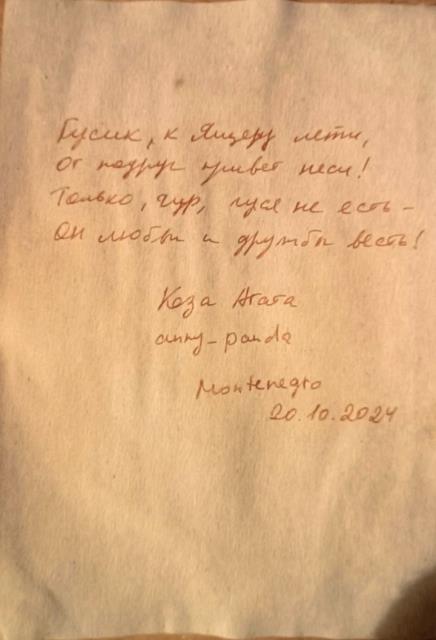 Гусик, к Ящеру лети,
от подруг привет неси!
Только, чур, гуся не есть –
он любви и дружбы весть!
Коза Агата
anny-panda
Montenegro
20.10.2024